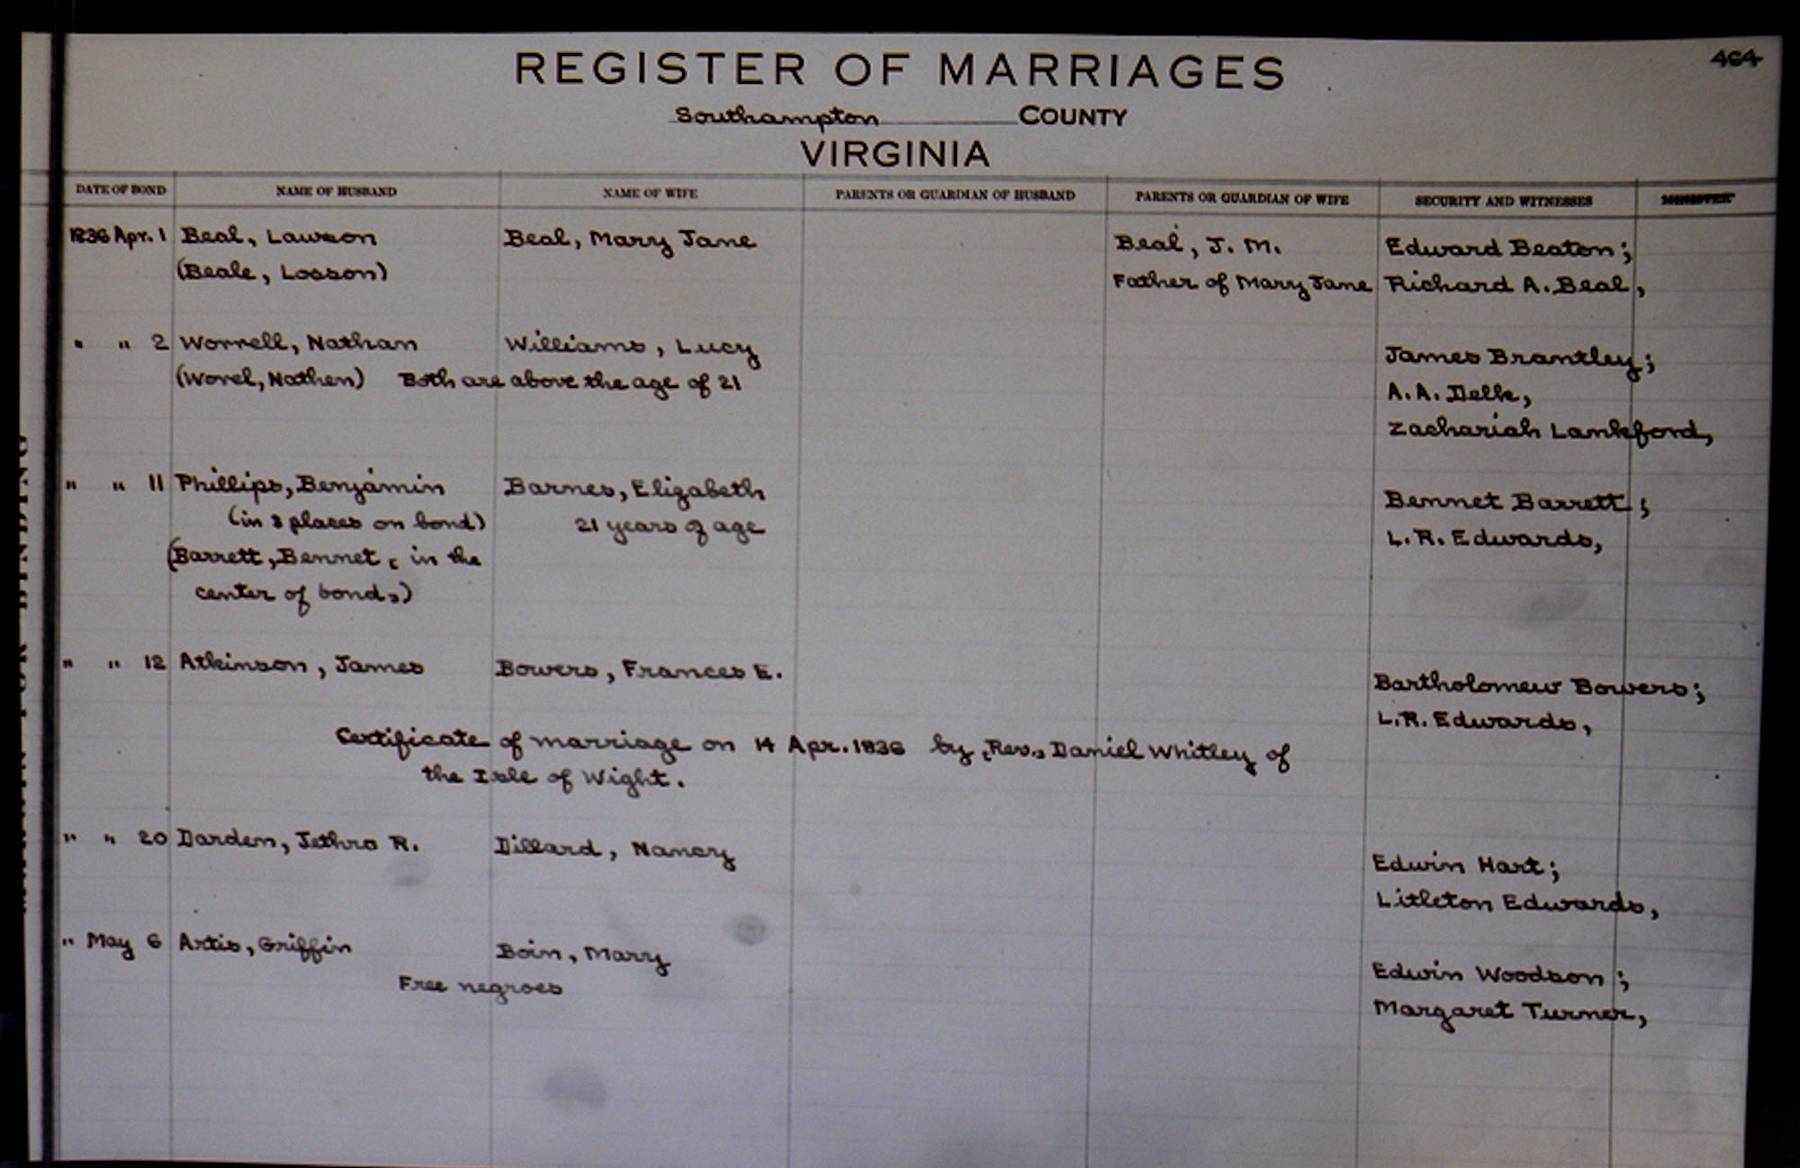 464
REGISTER OF MARRIAGES
Southampton COUNTY
VIRGINIA
DATE OF BOND NAME OF HUSBAND NAME OF WIFE PARENTS OR GUARDIAN OF HUSBAND PARENTS OR GUARDIAN OF WIFE SECURITY AND WITNESSES MINISTER
1836 Apr. 1 Beal, Lawson Beal, Mary Jane Beal, J. M. Edward Beaton;
(Beale, Losson) Father of Mary Jane Richard A. Beal,
" " 2 Worrell, Nathan Williams, Lucy James Brantley;
(Worel, Nathen) Both are above the age of 21 A. A. Delk,
Zachariah Lankford,
" " 11 Phillips, Benjamin Barnes, Elizabeth Bennet Barrett;
(in 3 places on bond) 21 years of age L. R. Edwards,
(Barrett, Bennet, in the
center of bond,)
" " 12 Atkinson, James Bowers, Frances E. Bartholomew Bowers;
L. R. Edwards,
Certificate of marriage on 14 Apr. 1836 by Rev. Daniel Whitley of
the Isle of Wight.
" " 20 Darden, Jethro R. Dillard, Nancy Edwin Hart;
Litleton Edwards,
" May 6 Artis, Griffin Boin, Mary Edwin Woodson;
Free negroes Margaret Turner,